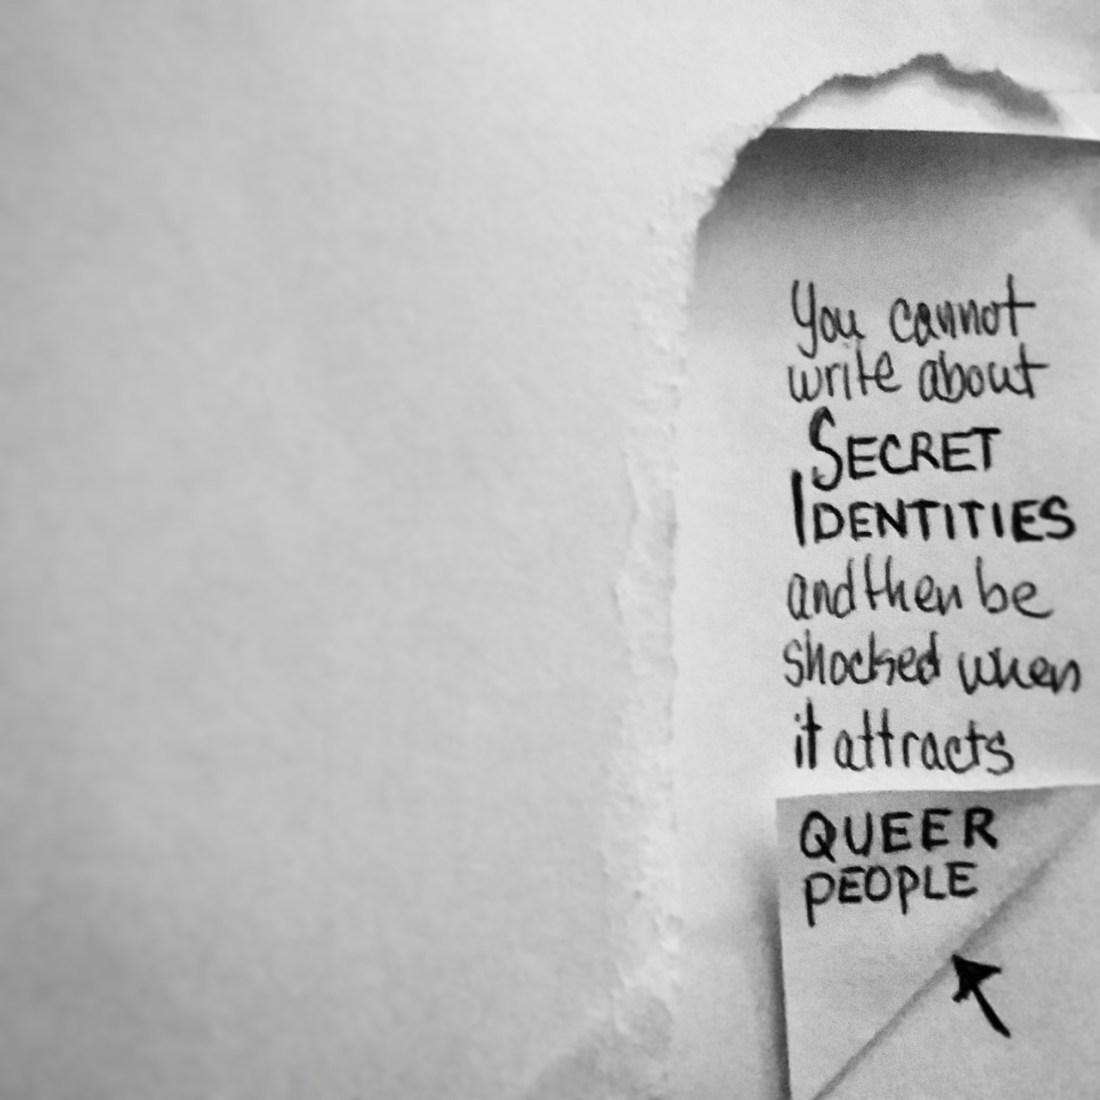 You cannot
write about
SECRET
IDENTITIES
and then be
shocked when
it attracts
QUEER
PEOPLE